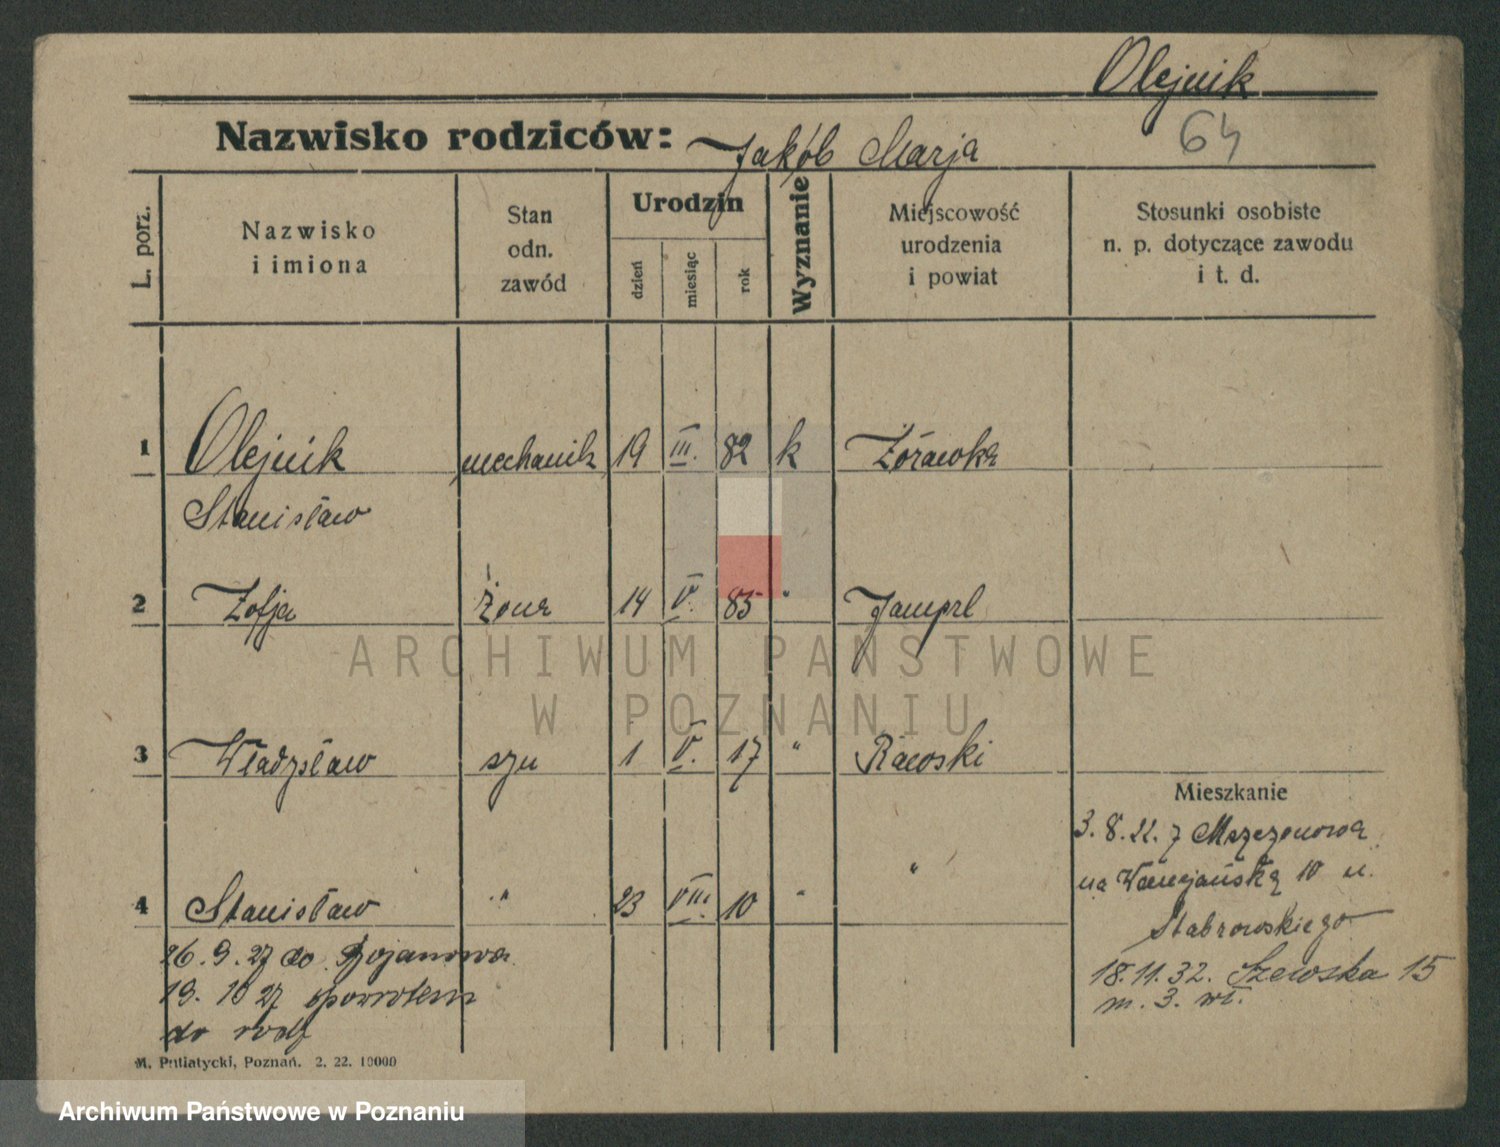 Olejnik
Nazwisko rodziców: Jakób Marja
64
L. porz.
Nazwisko
i imiona
Stan
odn.
zawód
Urodzin
dzień
miesiąc
rok
Wyznanie
Miejscowość
urodzenia
i powiat
Stosunki osobiste
n. p. dotyczące zawodu
i t. d.
1 Olejnik mechanik 19 III. 82 k Żórawka
Stanisław
2 Zofja Żona 14 V. 85 "
ARCHIWUM PAŃSTWOWE
W POZNANIU
3 Władysław syn 1 V. 17 " Rawski
Mieszkanie
3. 8. 22. z
4 Stanisław " 23 VIII. 10 " "
na 10 u.
Stabrowskiego
26. 9. 27 do Bojanowa
18. 11. 32. Szewska 15
19. 10 27 spowrotem
m. 3. wł.
do rodz
M. Putiatycki, Poznań. 2. 22. 10000
Archiwum Państwowe w Poznaniu